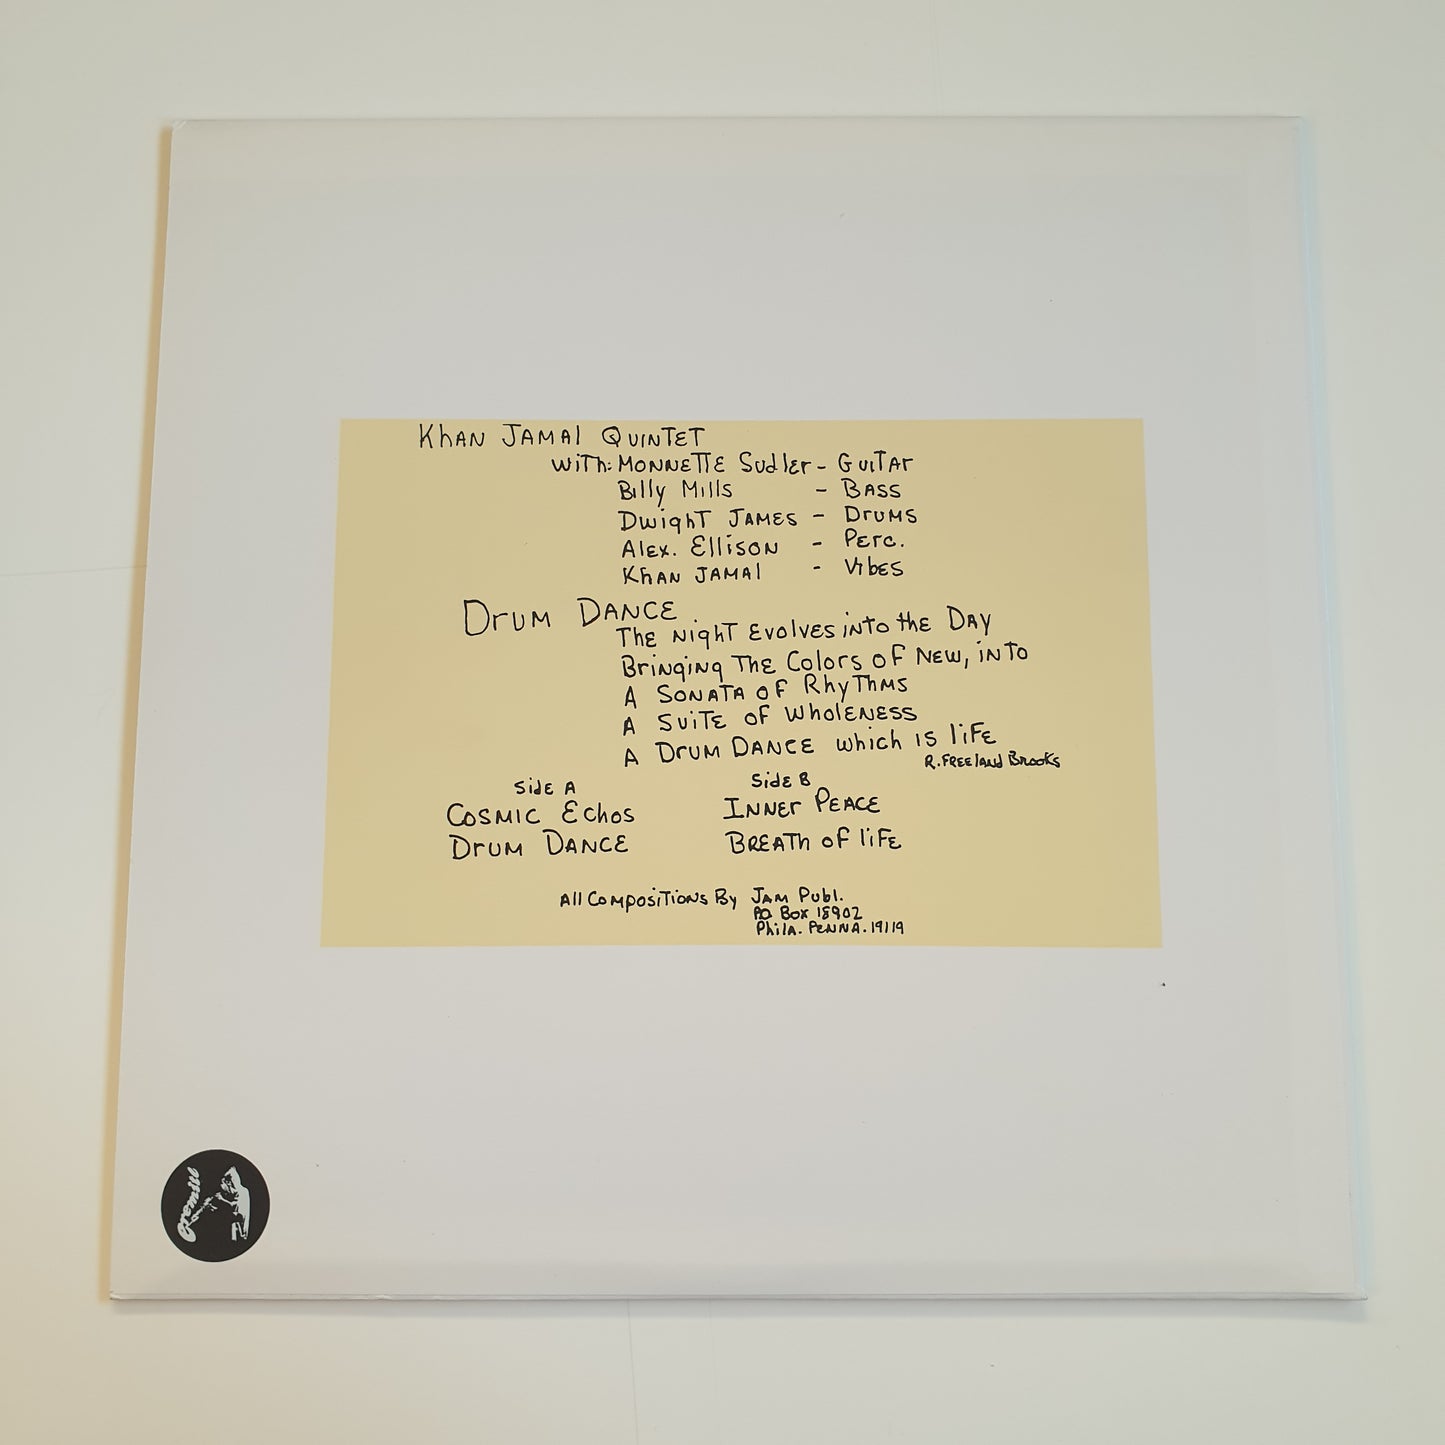 Khan Jamal Quintet
with: Monnette Sudler - Guitar
Billy Mills - Bass
Dwight James - Drums
Alex. Ellison - Perc.
Khan Jamal - Vibes
Drum Dance
The Night Evolves into the Day
Bringing The Colors of New, into
A Sonata of Rhythms
A Suite of Wholeness
A Drum Dance which is life
R. Freeland Brooks
Side A
Cosmic Echos
Drum Dance
Side B
Inner Peace
Breath of life
All Compositions By Jam Publ.
PO Box 18902
Phila. Penna. 19119